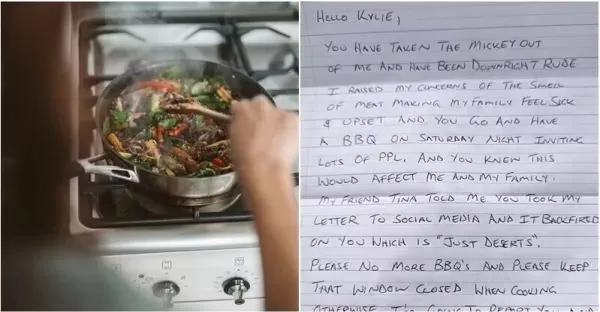 Hello Kylie,
You have taken the mickey out
of me and have been downright rude
I raised my concerns of the smell
of meat making my family feel sick
& upset and you go and have
a BBQ on Saturday night inviting
lots of ppl, and you knew this
would affect me and my family.
My friend Tina told me you took my
letter to social media and it backfired
on you which is "just deserts".
Please no more BBQ's and please keep
that window closed when cooking
otherwise I'm going to report you and